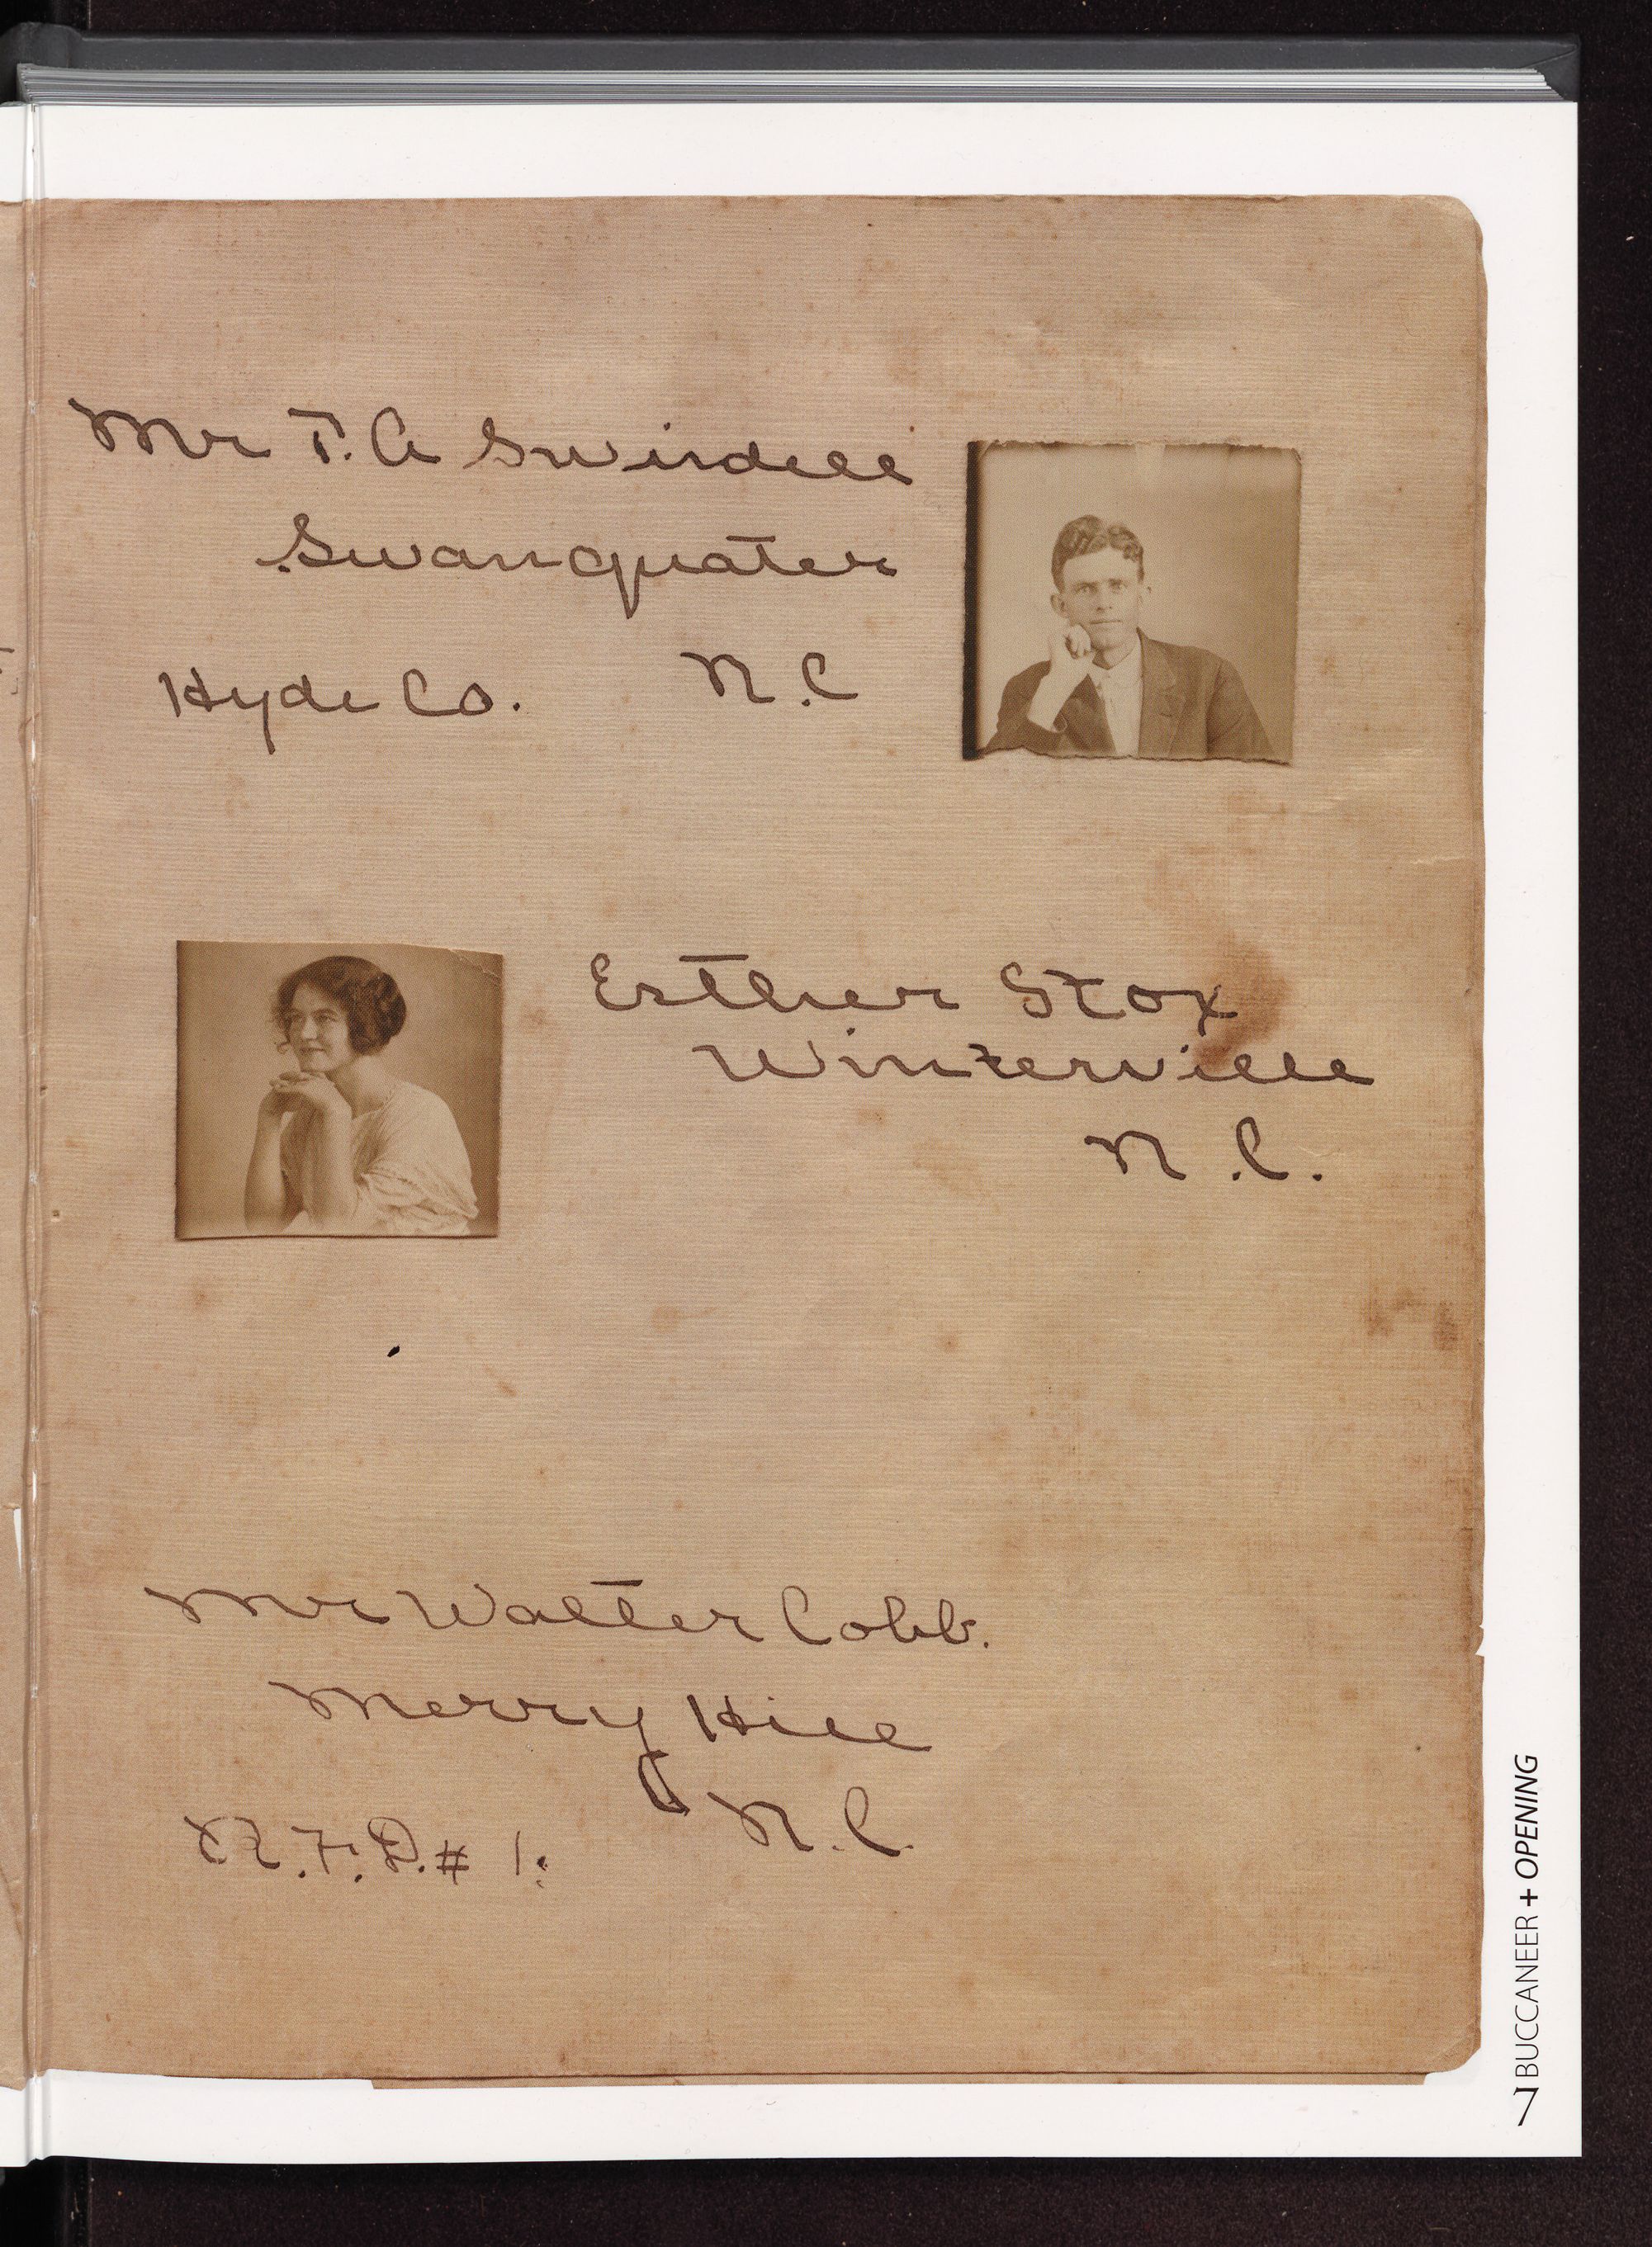 Mr T. A Swindell
Swanquater
Hyde Co. N.C
Esther Stox
Winterville
N.C.
Mr Walter Cobb.
Merry Hill
N.C.
R.F.D.# 1.
7 BUCCANEER + OPENING